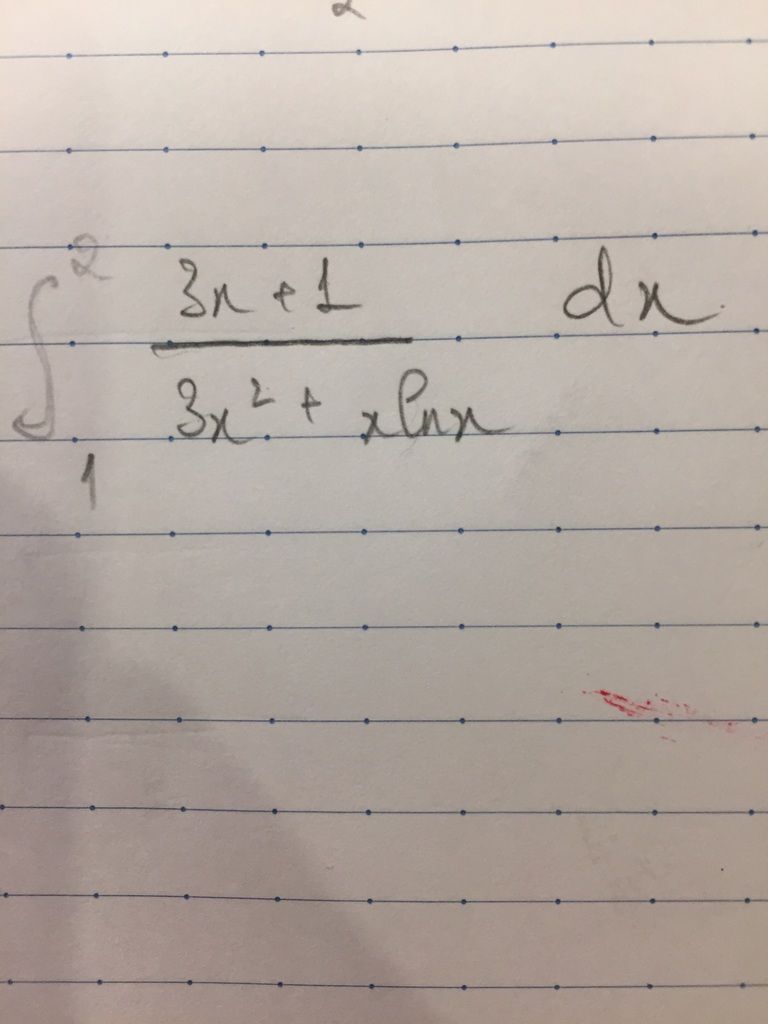 2
∫₁² (3x + 1)/(3x² + x ln x) dx